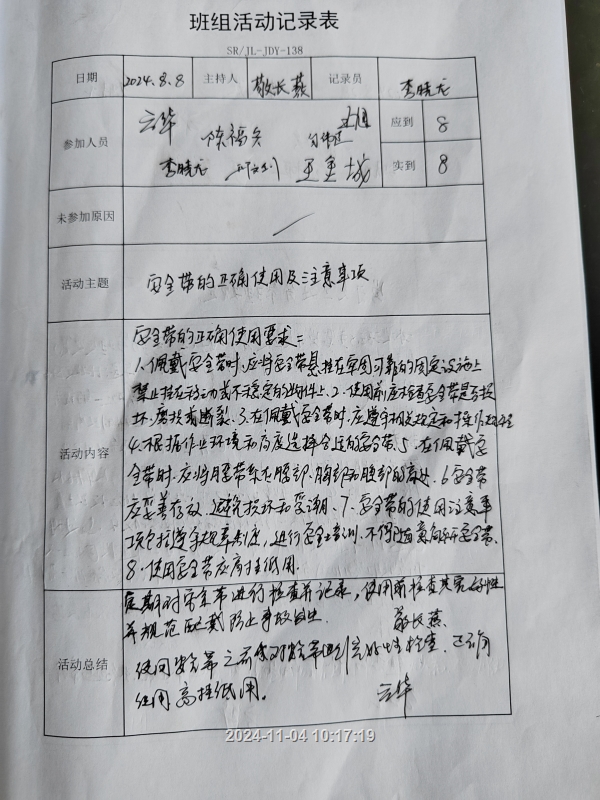 班组活动记录表
SR/JL-JDY-138
日期 2024.8.8 主持人 敬长燕 记录员 李晓龙
参加人员 云华 陈福兴 应到 8
李晓龙 王金城 实到 8
未参加原因 /
活动主题 安全带的正确使用及注意事项
活动内容
安全带的正确使用要求:
1.佩戴安全带时,应将安全带悬挂在牢固可靠的固定设施上
禁止挂在移动或不稳定的物件上.2.使用前应检查安全带是否损
坏、磨损或断裂.3.在佩戴安全带时,应遵守相关规定和操作规程
4.根据作业环境和高度选择合适的安全带.5.在佩戴安
全带时,应将腰带系于腰部、胸部和腿部的 6.安全带
应妥善存放,避免损坏和受潮.7.安全带的使用注意事
项包括遵守规章制度,进行安全培训.不得随意解开安全带.
8.使用安全带应高挂低用.
活动总结
定期对安全带进行检查并记录,使用前检查其完好性
并规范配戴防止事故发生. 敬长燕
使用安全带之前先对安全带进行完好性检查,正确
使用高挂低用. 云华
2024-11-04 10:17:19